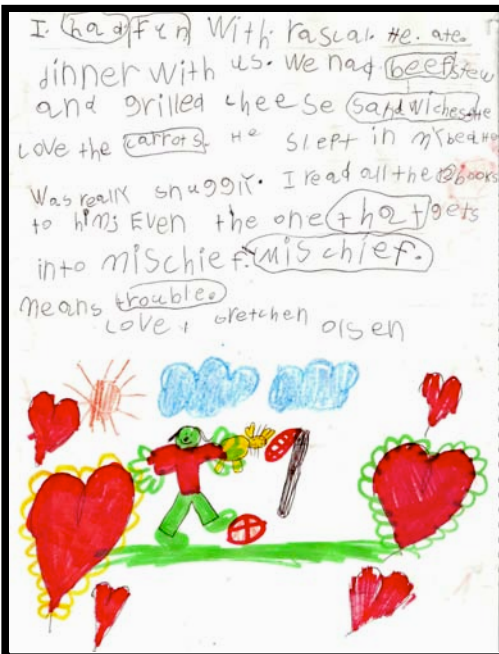 I had Fun With rascal. He. ate.
dinner with us. we had beef stew
and grilled cheese sandwiches. He
Love the carrots. He slept in my bed He
Was really snuggly. I read all the 12 books
to him; Even the one that gets
into mischief. Mischief.
means trouble.
Love, Gretchen Olsen